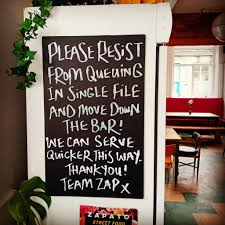 PLEASE RESIST
FROM QUEUING
IN SINGLE FILE
AND MOVE DOWN
THE BAR!
WE CAN SERVE
QUICKER THIS WAY.
THANK YOU!
TEAM ZAP X
ZAPATO
STREET FOOD